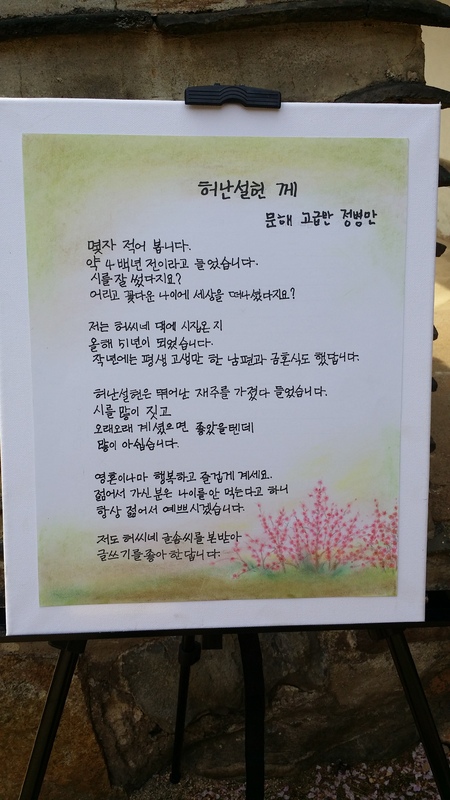 허난설헌 께
문해 고급반 정병만
몇자 적어 봅니다.
약 4백년 전이라고 들었습니다.
시를 잘 썼다지요?
어리고 꽃다운 나이에 세상을 떠나셨다지요?
저는 허씨네 댁에 시집온 지
올해 51년이 되었습니다.
작년에는 평생 고생만 한 남편과 금혼식도 했답니다.
허난설헌은 뛰어난 재주를 가졌다 들었습니다.
시를 많이 짓고
오래오래 계셨으면 좋았을텐데
많이 아쉽습니다.
영혼이나마 행복하고 즐겁게 계세요.
젊어서 가신분은 나이를 안 먹는다고 하니
항상 젊어서 예쁘시겠습니다.
저도 허씨네 글솜씨를 본받아
글쓰기를 좋아 한답니다.